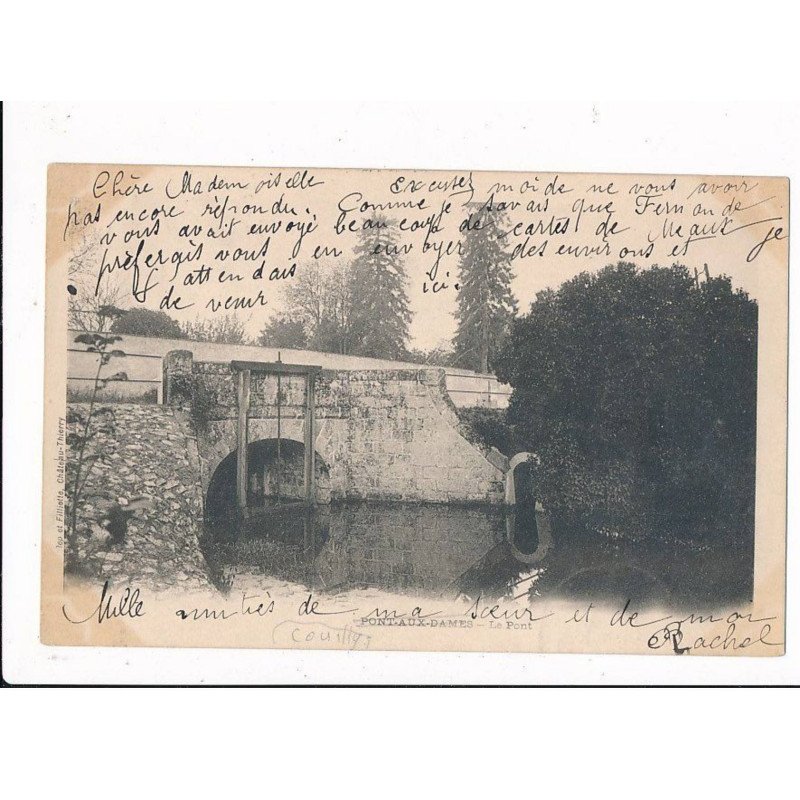 Chère Mademoiselle Excusez moi de ne vous avoir
pas encore répondu. Comme je savais que Fernande
vous avait envoyé beaucoup de cartes de Meaux je
préférais vous en envoyer des environs et
j'attendais
de venir ici.
Iou et Filliette, Château-Thierry
Mille amitiés de ma sœur et de moi
PONT-AUX-DAMES - Le Pont
Couilly
Rachel